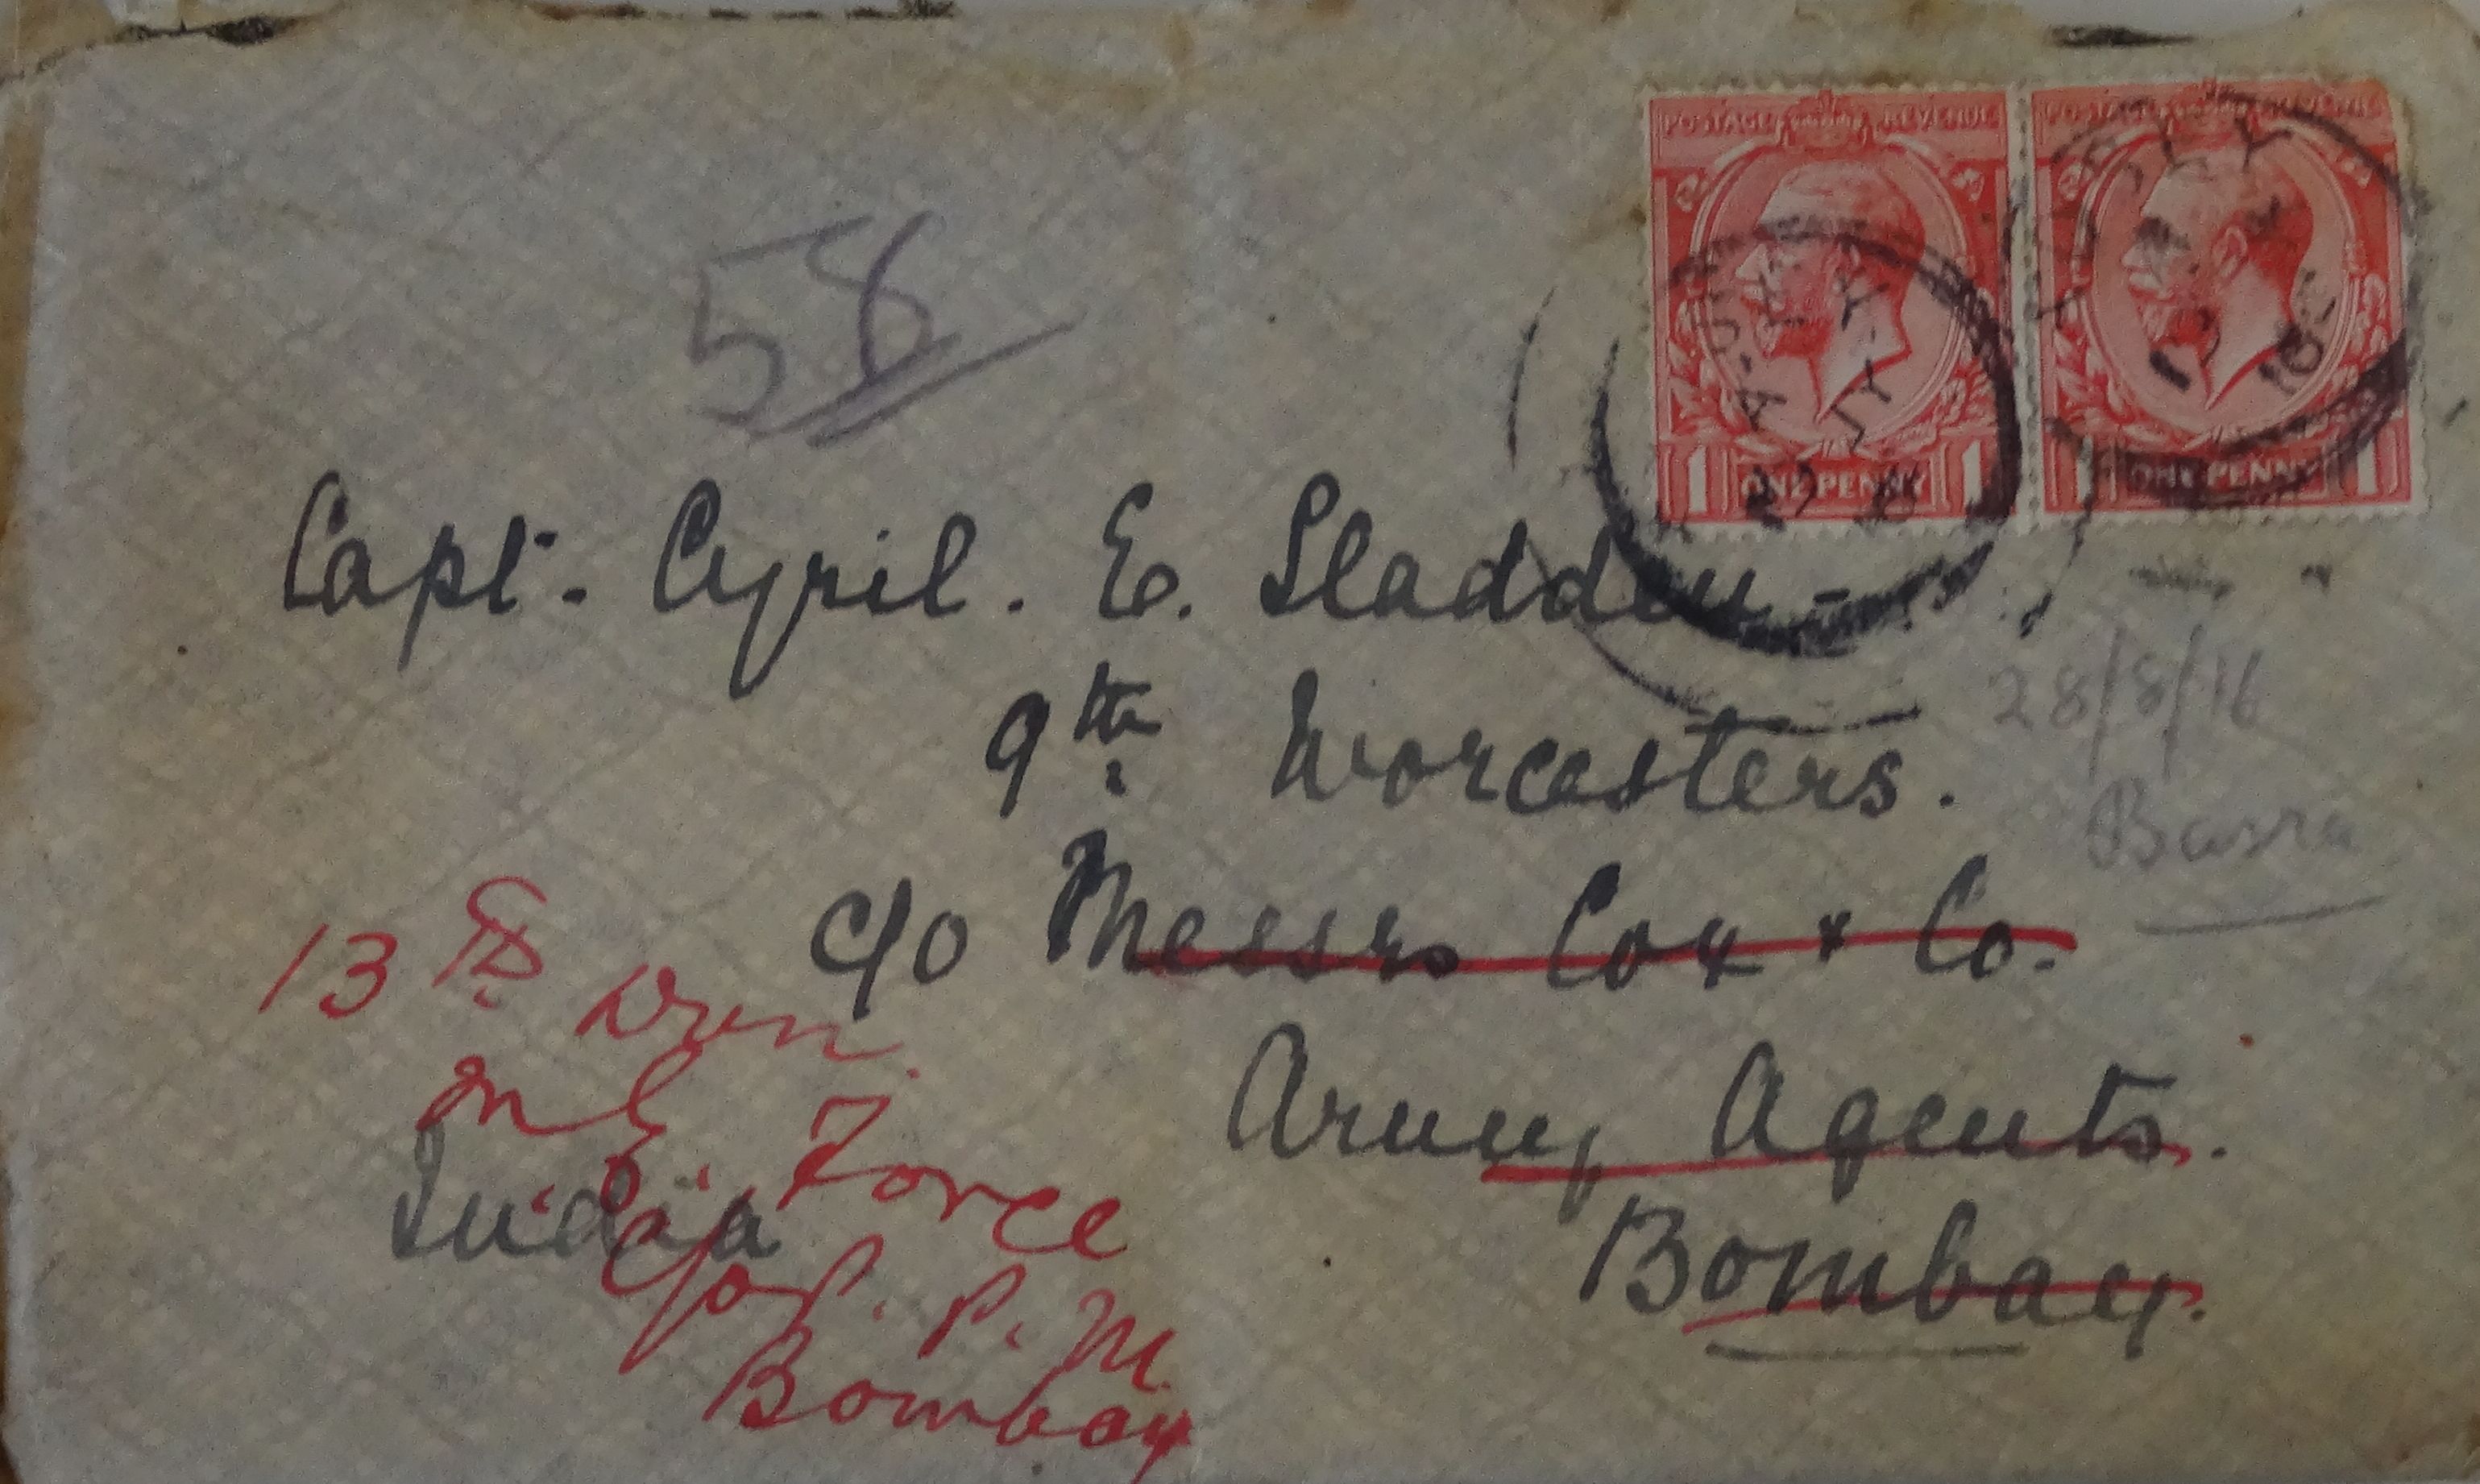 POSTAGE REVENUE POSTAGE REVENUE
1 ONE PENNY 1 1 ONE PENNY 1
58
Capt. Cyril. E. Sladden -
9th Worcesters.
28/8/16
Basra
c/o Messrs Cox & Co.
Army Agents.
Bombay.
India
13th Divn.
M. E. Force
c/o P. M.
Bombay